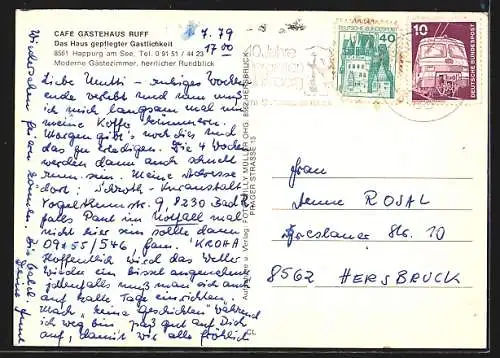 CAFE GÄSTEHAUS RUFF
Das Haus gepflegter Gastlichkeit
8561 Happurg am See, Tel. 0 91 51 / 44 23
Moderne Gästezimmer, herrlicher Rundblick
7.79
17 00
Liebe Mutti - ruhiges Wochen
ende verlebt und nun muß
ich mich langsam mal um
meine Koffer kümmern.
Morgen gibt's noch dies und
das zu erledigen. Die 4 Wochen
werden dann auch schnell
rum sein. Meine Adresse
dort: Schroth-Kuranstalt
9, 8230 Bad R.
falls Du im Notfall mal
nicht hier sein sollte dann
/546, fam. KROHA
Hoffentlich wird das Wetter
wieder ein bissel angenehmer
jedenfalls muß man sich auch
auf kalte Tage einrichten.
Mach "keine Geschichten" während
ich weg bin paß gut auf Dich
auf, damit wir alle fröhlich
Wiedersehen feiern können.
Bis bald
Deine
Aufnahme u. Verlag: FOTO WILLY MÜLLER OHG · 8562 HERSBRUCK
PRAGER STRASSE 15
10 Jahre
DEUTSCHE BUNDESPOST
40
10
DEUTSCHE BUNDESPOST
Frau
ROJAL
Breslauer Str. 10
8562 HERSBRUCK